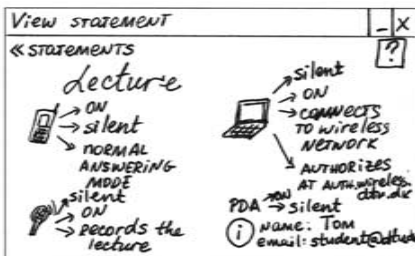 View statement
_ X
« STATEMENTS
?
Lecture
→ ON
→ silent
→ NORMAL
ANSWERING
MODE
silent
→ ON
→ Records the
lecture
silent
→ ON
→ CONNECTS
TO WIRELESS
NETWORK
AUTHORIZES
AT AUTH.wireless.
dtu.dk
PDA → ON
→ silent
i name: Tom
email: student@dtu.dk